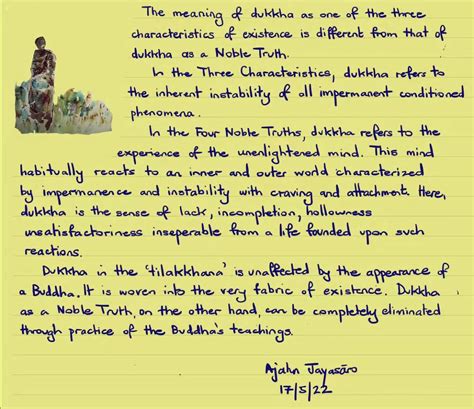 The meaning of dukkha as one of the three
characteristics of existence is different from that of
dukkha as a Noble Truth.
In the Three Characteristics, dukkha refers to
the inherent instability of all impermanent conditioned
phenomena.
In the Four Noble Truths, dukkha refers to the
experience of the unenlightened mind. This mind
habitually reacts to an inner and outer world characterized
by impermanence and instability with craving and attachment. Here,
dukkha is the sense of lack, incompletion, hollowness
unsatisfactoriness inseperable from a life founded upon such
reactions.
Dukkha in the 'tilakkhana' is unaffected by the appearance of
a Buddha. It is woven into the very fabric of existence. Dukkha
as a Noble Truth, on the other hand, can be completely eliminated
through practice of the Buddha's teachings.
Ajahn Jayasāro
17/5/22